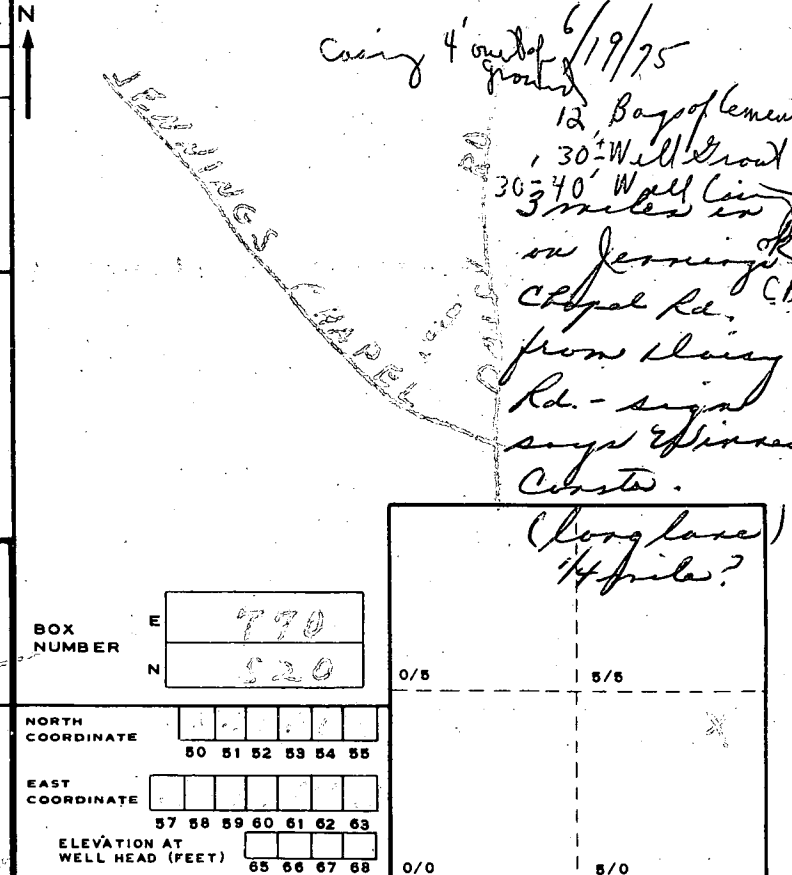 N
Casing 4' out of ground
6/19/75
12 Bags of Cemen
30± Well Grout
30-40' Well Casing
3 miles in
on Jennings
Chapel Rd.
from Daisy
Rd. - sign
says
Constr.
(long lane)
1/4 mile?
ok
JENNINGS CHAPEL
DAISY RD
BOX NUMBER
E 770
N 520
NORTH COORDINATE
50 51 52 53 54 55
EAST COORDINATE
57 58 59 60 61 62 63
ELEVATION AT WELL HEAD (FEET)
65 66 67 68
0/5 5/5
X
0/0 5/0